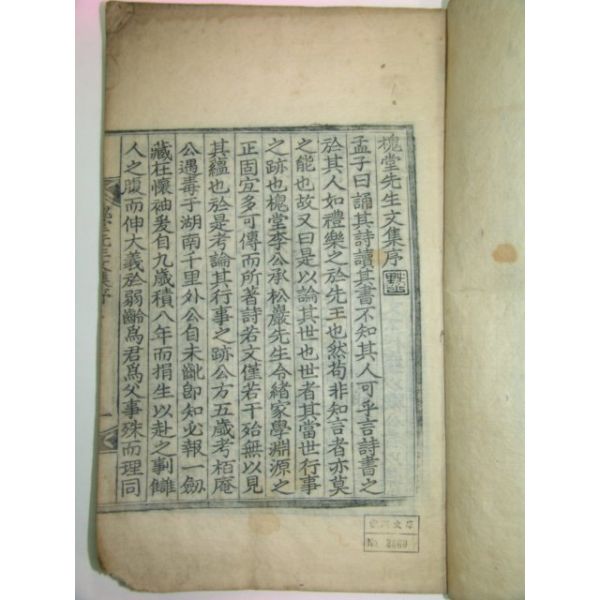 槐堂先生文集序
孟子曰誦其詩讀其書不知其人可乎言詩書之
於其人如禮樂之於先王也然苟非知言者亦莫
之能也故又曰是以論其世也世者其當世行事
之跡也槐堂李公承松巖先生令緖家學淵源之
正固宜多可傳而所著詩若文僅若干殆無以見
其蘊也於是考論其行事之跡公方五歲考栢庵
公遇毒于湖南千里外公自未齔卽知必報一劒
藏在懷袖爰自九歲積八年而捐生以赴之剚讎
人之腹而伸大義於弱齡爲君爲父事殊而理同
文庫
No.